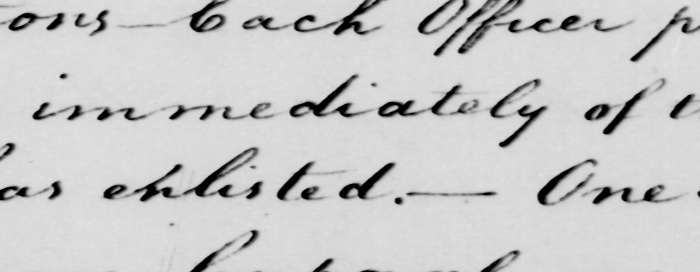 ons - Each Officer p
immediately of t
has enlisted. — One